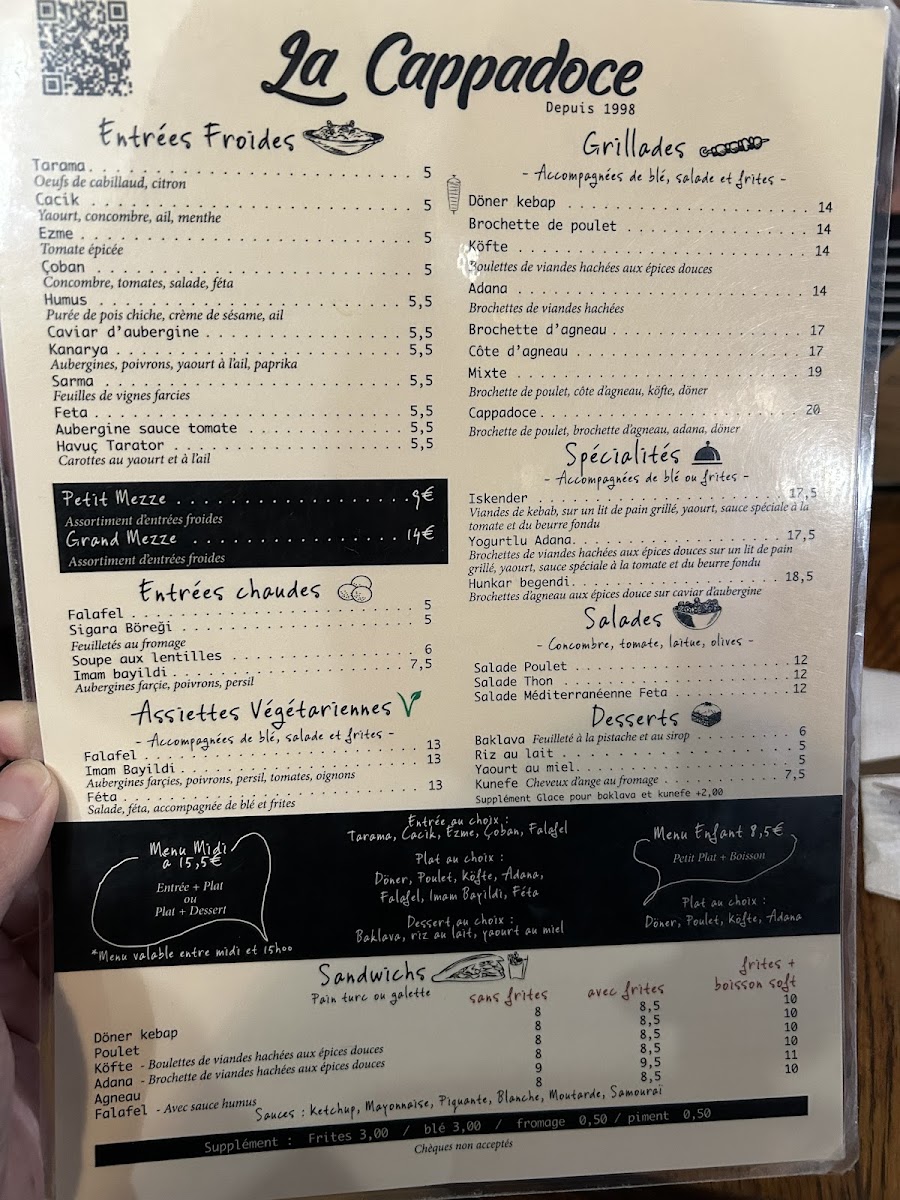 La Cappadoce
Depuis 1998
Entrées Froides
Tarama. . . . . . . . . . . . . . . . . . . . . . . 5
Oeufs de cabillaud, citron
Cacik . . . . . . . . . . . . . . . . . . . . . . . 5
Yaourt, concombre, ail, menthe
Ezme . . . . . . . . . . . . . . . . . . . . . . . 5
Tomate épicée
Çoban . . . . . . . . . . . . . . . . . . . . . . . 5
Concombre, tomates, salade, féta
Humus . . . . . . . . . . . . . . . . . . . . . . 5,5
Purée de pois chiche, crème de sésame, ail
Caviar d'aubergine . . . . . . . . . . . . . . 5,5
Kanarya . . . . . . . . . . . . . . . . . . . . . 5,5
Aubergines, poivrons, yaourt à l'ail, paprika
Sarma . . . . . . . . . . . . . . . . . . . . . . 5,5
Feuilles de vignes farcies
Feta . . . . . . . . . . . . . . . . . . . . . . . 5,5
Aubergine sauce tomate . . . . . . . . . . . 5,5
Havuç Tarator . . . . . . . . . . . . . . . . . 5,5
Carottes au yaourt et à l'ail
Petit Mezze . . . . . . . . . . . . . . . . . . 9€
Assortiment d'entrées froides
Grand Mezze . . . . . . . . . . . . . . . . . 14€
Assortiment d'entrées froides
Entrées chaudes
Falafel . . . . . . . . . . . . . . . . . . . . . 5
Sigara Böreği . . . . . . . . . . . . . . . . . 5
Feuilletés au fromage
Soupe aux lentilles . . . . . . . . . . . . . 6
Imam bayildi. . . . . . . . . . . . . . . . . . 7,5
Aubergines farçie, poivrons, persil
Assiettes Végétariennes
- Accompagnées de blé, salade et frites -
Falafel . . . . . . . . . . . . . . . . . . . . . 13
Imam Bayildi. . . . . . . . . . . . . . . . . . 13
Aubergines farçies, poivrons, persil, tomates, oignons
Féta . . . . . . . . . . . . . . . . . . . . . . . 13
Salade, féta, accompagnée de blé et frites
Grillades
- Accompagnées de blé, salade et frites -
Döner kebap . . . . . . . . . . . . . . . . . . 14
Brochette de poulet . . . . . . . . . . . . . 14
Köfte . . . . . . . . . . . . . . . . . . . . . . 14
Boulettes de viandes hachées aux épices douces
Adana . . . . . . . . . . . . . . . . . . . . . . 14
Brochettes de viandes hachées
Brochette d'agneau . . . . . . . . . . . . . . 17
Côte d'agneau . . . . . . . . . . . . . . . . . 17
Mixte . . . . . . . . . . . . . . . . . . . . . . 19
Brochette de poulet, côte d'agneau, köfte, döner
Cappadoce. . . . . . . . . . . . . . . . . . . . 20
Brochette de poulet, brochette d'agneau, adana, döner
Spécialités
- Accompagnées de blé ou frites -
Iskender . . . . . . . . . . . . . . . . . . . . 17,5
Viandes de kebab, sur un lit de pain grillé, yaourt, sauce spéciale à la
tomate et du beurre fondu
Yogurtlu Adana. . . . . . . . . . . . . . . . . 17,5
Brochettes de viandes hachées aux épices douces sur un lit de pain
grillé, yaourt, sauce spéciale à la tomate et du beurre fondu
Hunkar begendi. . . . . . . . . . . . . . . . . 18,5
Brochettes d'agneau aux épices douce sur caviar d'aubergine
Salades
- Concombre, tomate, laitue, olives -
Salade Poulet . . . . . . . . . . . . . . . . . 12
Salade Thon . . . . . . . . . . . . . . . . . . 12
Salade Méditerranéenne Feta . . . . . . . . . 12
Desserts
Baklava Feuilleté à la pistache et au sirop . . . . . . . 6
Riz au lait . . . . . . . . . . . . . . . . . . . 5
Yaourt au miel. . . . . . . . . . . . . . . . . 5
Kunefe Cheveux d'ange au fromage . . . . . . . . . 7,5
Supplément Glace pour baklava et kunefe +2,00
Menu Midi
a 15,5€
Entrée + Plat
ou
Plat + Dessert
*Menu valable entre midi et 15h00
Entrée au choix :
Tarama, Cacik, Ezme, Çoban, Falafel
Plat au choix :
Döner, Poulet, Köfte, Adana,
Falafel, Imam Bayildi, Féta
Dessert au choix :
Baklava, riz au lait, yaourt au miel
Menu Enfant 8,5€
Petit Plat + Boisson
Plat au choix :
Döner, Poulet, Köfte, Adana
Sandwichs
Pain turc ou galette
sans frites avec frites frites + boisson soft
Döner kebap 8 8,5 10
Poulet 8 8,5 10
Köfte - Boulettes de viandes hachées aux épices douces 8 8,5 10
Adana - Brochette de viandes hachées aux épices douces 8 8,5 10
Agneau 9 9,5 11
Falafel - Avec sauce humus 8 8,5 10
Sauces : Ketchup, Mayonnaise, Piquante, Blanche, Moutarde, Samouraï
Supplément : Frites 3,00 / blé 3,00 / fromage 0,50 / piment 0,50
Chèques non acceptés